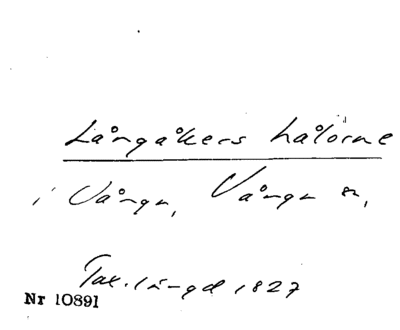 Långåkers hålorne
i Vångn, Vångn sn,
Tax.längd 1827
Nr 10891